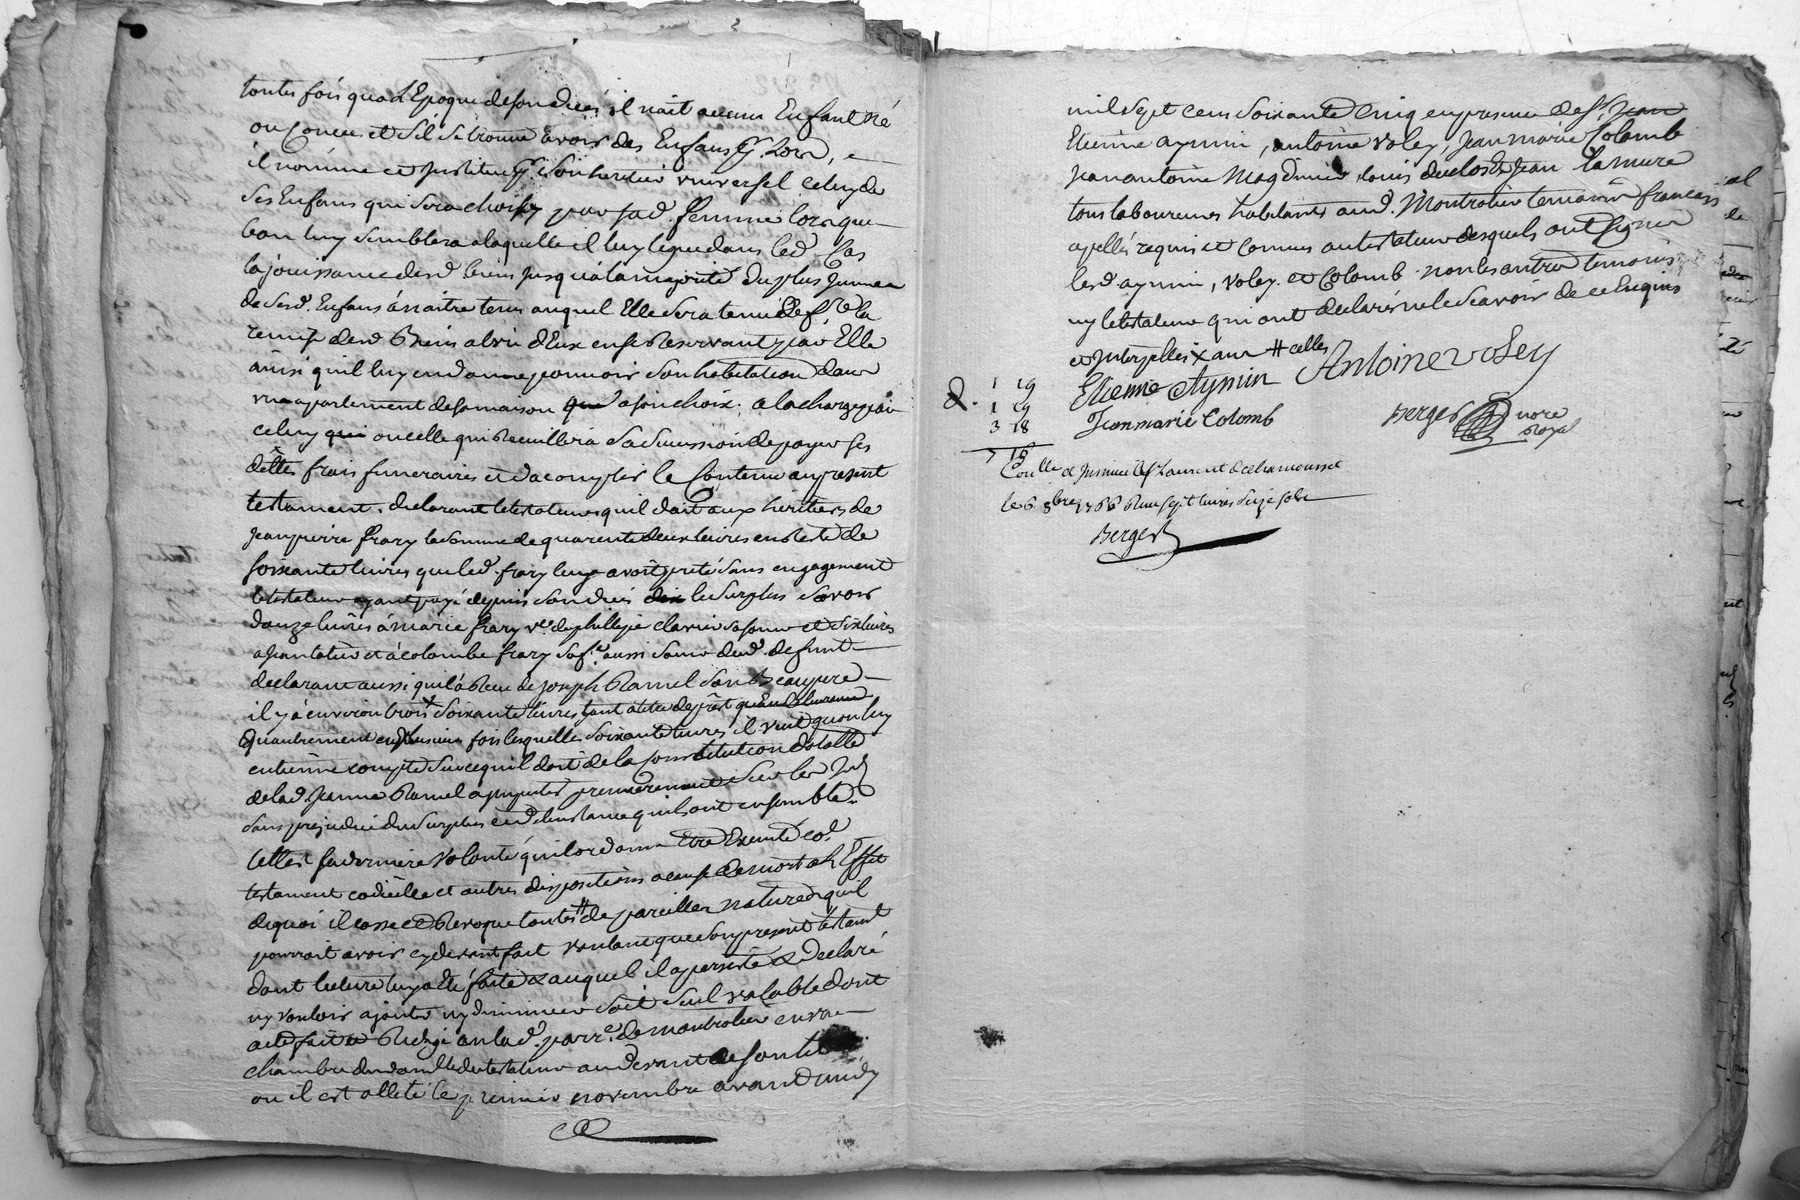 toutes fois qua L'Epoque de son deces il nait aucun Enfant né
ou Concu et s'il se trouve avoir des Enfans pr. Lors, e
il nomme et Institue pr. son heritier universel celuy de
ses Enfans qui sera choisy par sad. femme lorsque
bon luy semblera a laquelle il luy legue dans led. Cas
la jouissance desd. biens jusqu'a la majorité du plus jeune
de sesd. Enfans á naitre tems auquel Elle sera tenue de f.re la
remise desd. Biens a l'un d'Eux en se Reservant par Elle
ainsi qu'il luy en donne pouvoir son habitation dans
un apartement de sa maison a son choix, a la charge par
celuy ou celle qui Recuillira sa succession de payer ses
dettes frais funeraires et d'acomplir le Contenu au present
testament. declarant le testateur qu'il doit aux heritiers de
jean pierre frary la somme de quarente deux livres en Reste de
soixante livres que led. frary luy avoit preté sans engagement
le testateur ayant payé depuis son deces le surplus scavoir
douze livres á marie frary v.ve de phillipe clavier sa soeur et six livres
a jean tatier et á colombe frary sa f.e aussi soeur dud. defunt
declarant aussi qu'il á Reçu de joseph Ramel son Beaupere
il y a environ trois soixante livres tant a titre de prêt
quautrement en plusieurs fois lesquelles soixante livres il veut qu'on luy
entienne compte sur ce qu'il doit de la Constitution dotalle
de lad. Jeanne Ramel a imputer premierement sur les
sans prejudice du surplus et de l'instance qu'ils ont ensemble.
telle est sa derniere volonté qu'il ordonne Etre Executé co.
testament codicille et autres dispositions a cause de mort a L'Effet
de quoi il casse et Revoque toutes # de pareilles natures qu'il
pourrait avoir cy devant fait voulant que son present testament
dont lecture luy a été faitte & auquel il a persisté & declaré
ny vouloir ajouter ny diminuer soit seul valable dont
acte fait et Redigé en lad. parr.e de montrotier en une
chambre du domille du testateur au devant de son lit
ou il est allité le premier novembre avant midy
mil sept cens soixante cinq en presence de sr. Jean
Etienne aymin, antoine voley, Jean marie Colomb
jean antoine Magdinier, louis duclos & jean la mure
tous laboureurs habitants aud. Montrotier temoins francais
apellés requis et Connus au testateur desquels ont signé
lesd. aymin, voley, et Colomb non les autres temoins
ny le testateur qui ont declarés ne le scavoir de ce Enquis
et Interpellés X an # celles
Etienne Aymin Antoine voley
Jean marie Colomb
Berger nore
Royal
1 19
1 19
3 18
7 16
Con.lle et Insinué a St Laurent de chamousset
le 6 8bre 1766 Reçu sept livres seize sols
Berger